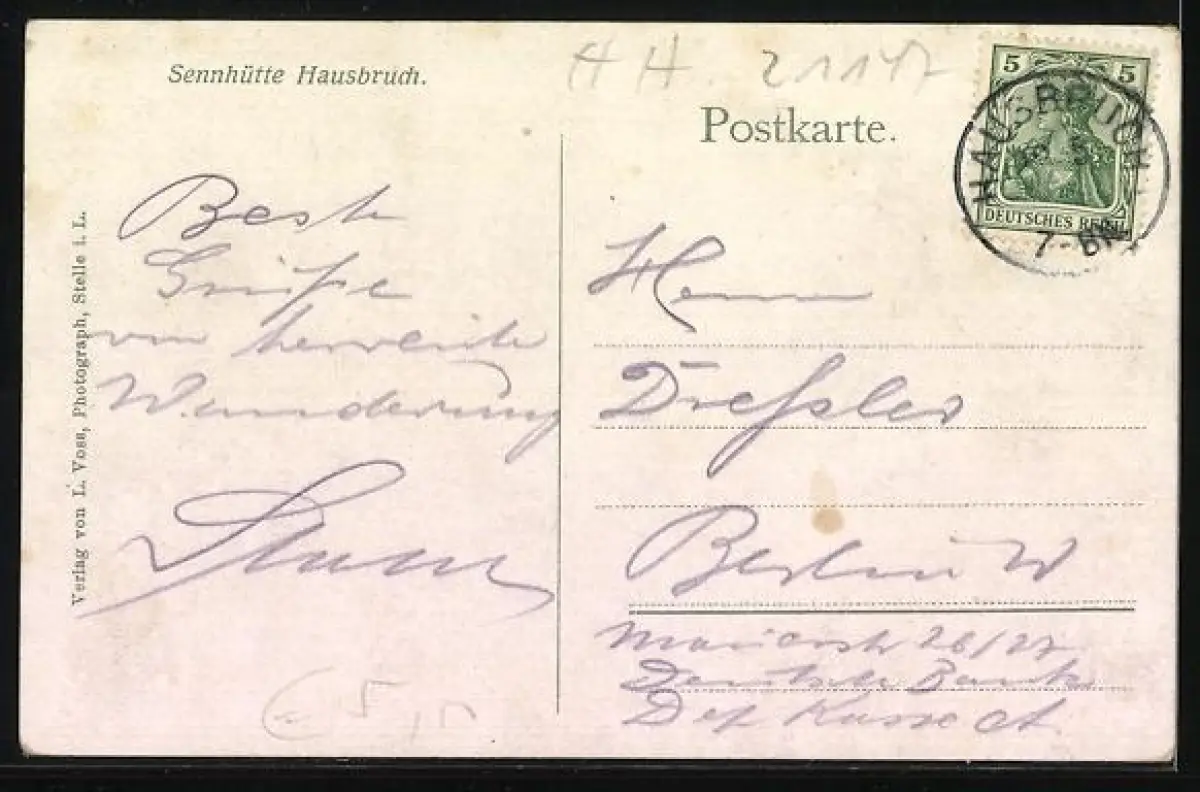 Sennhütte Hausbruch.
HH 21147
Postkarte.
5 5
DEUTSCHES REICH
HAUSBRUCH
7-8N
Verlag von L. Voss, Photograph, Stelle i. L.
Beste
Grüße
von herrlicher
Wanderung
Herrn
Dressler
Berlin W
Mauerstr 26/27
Deutsche Bank
Dep Kasse A.